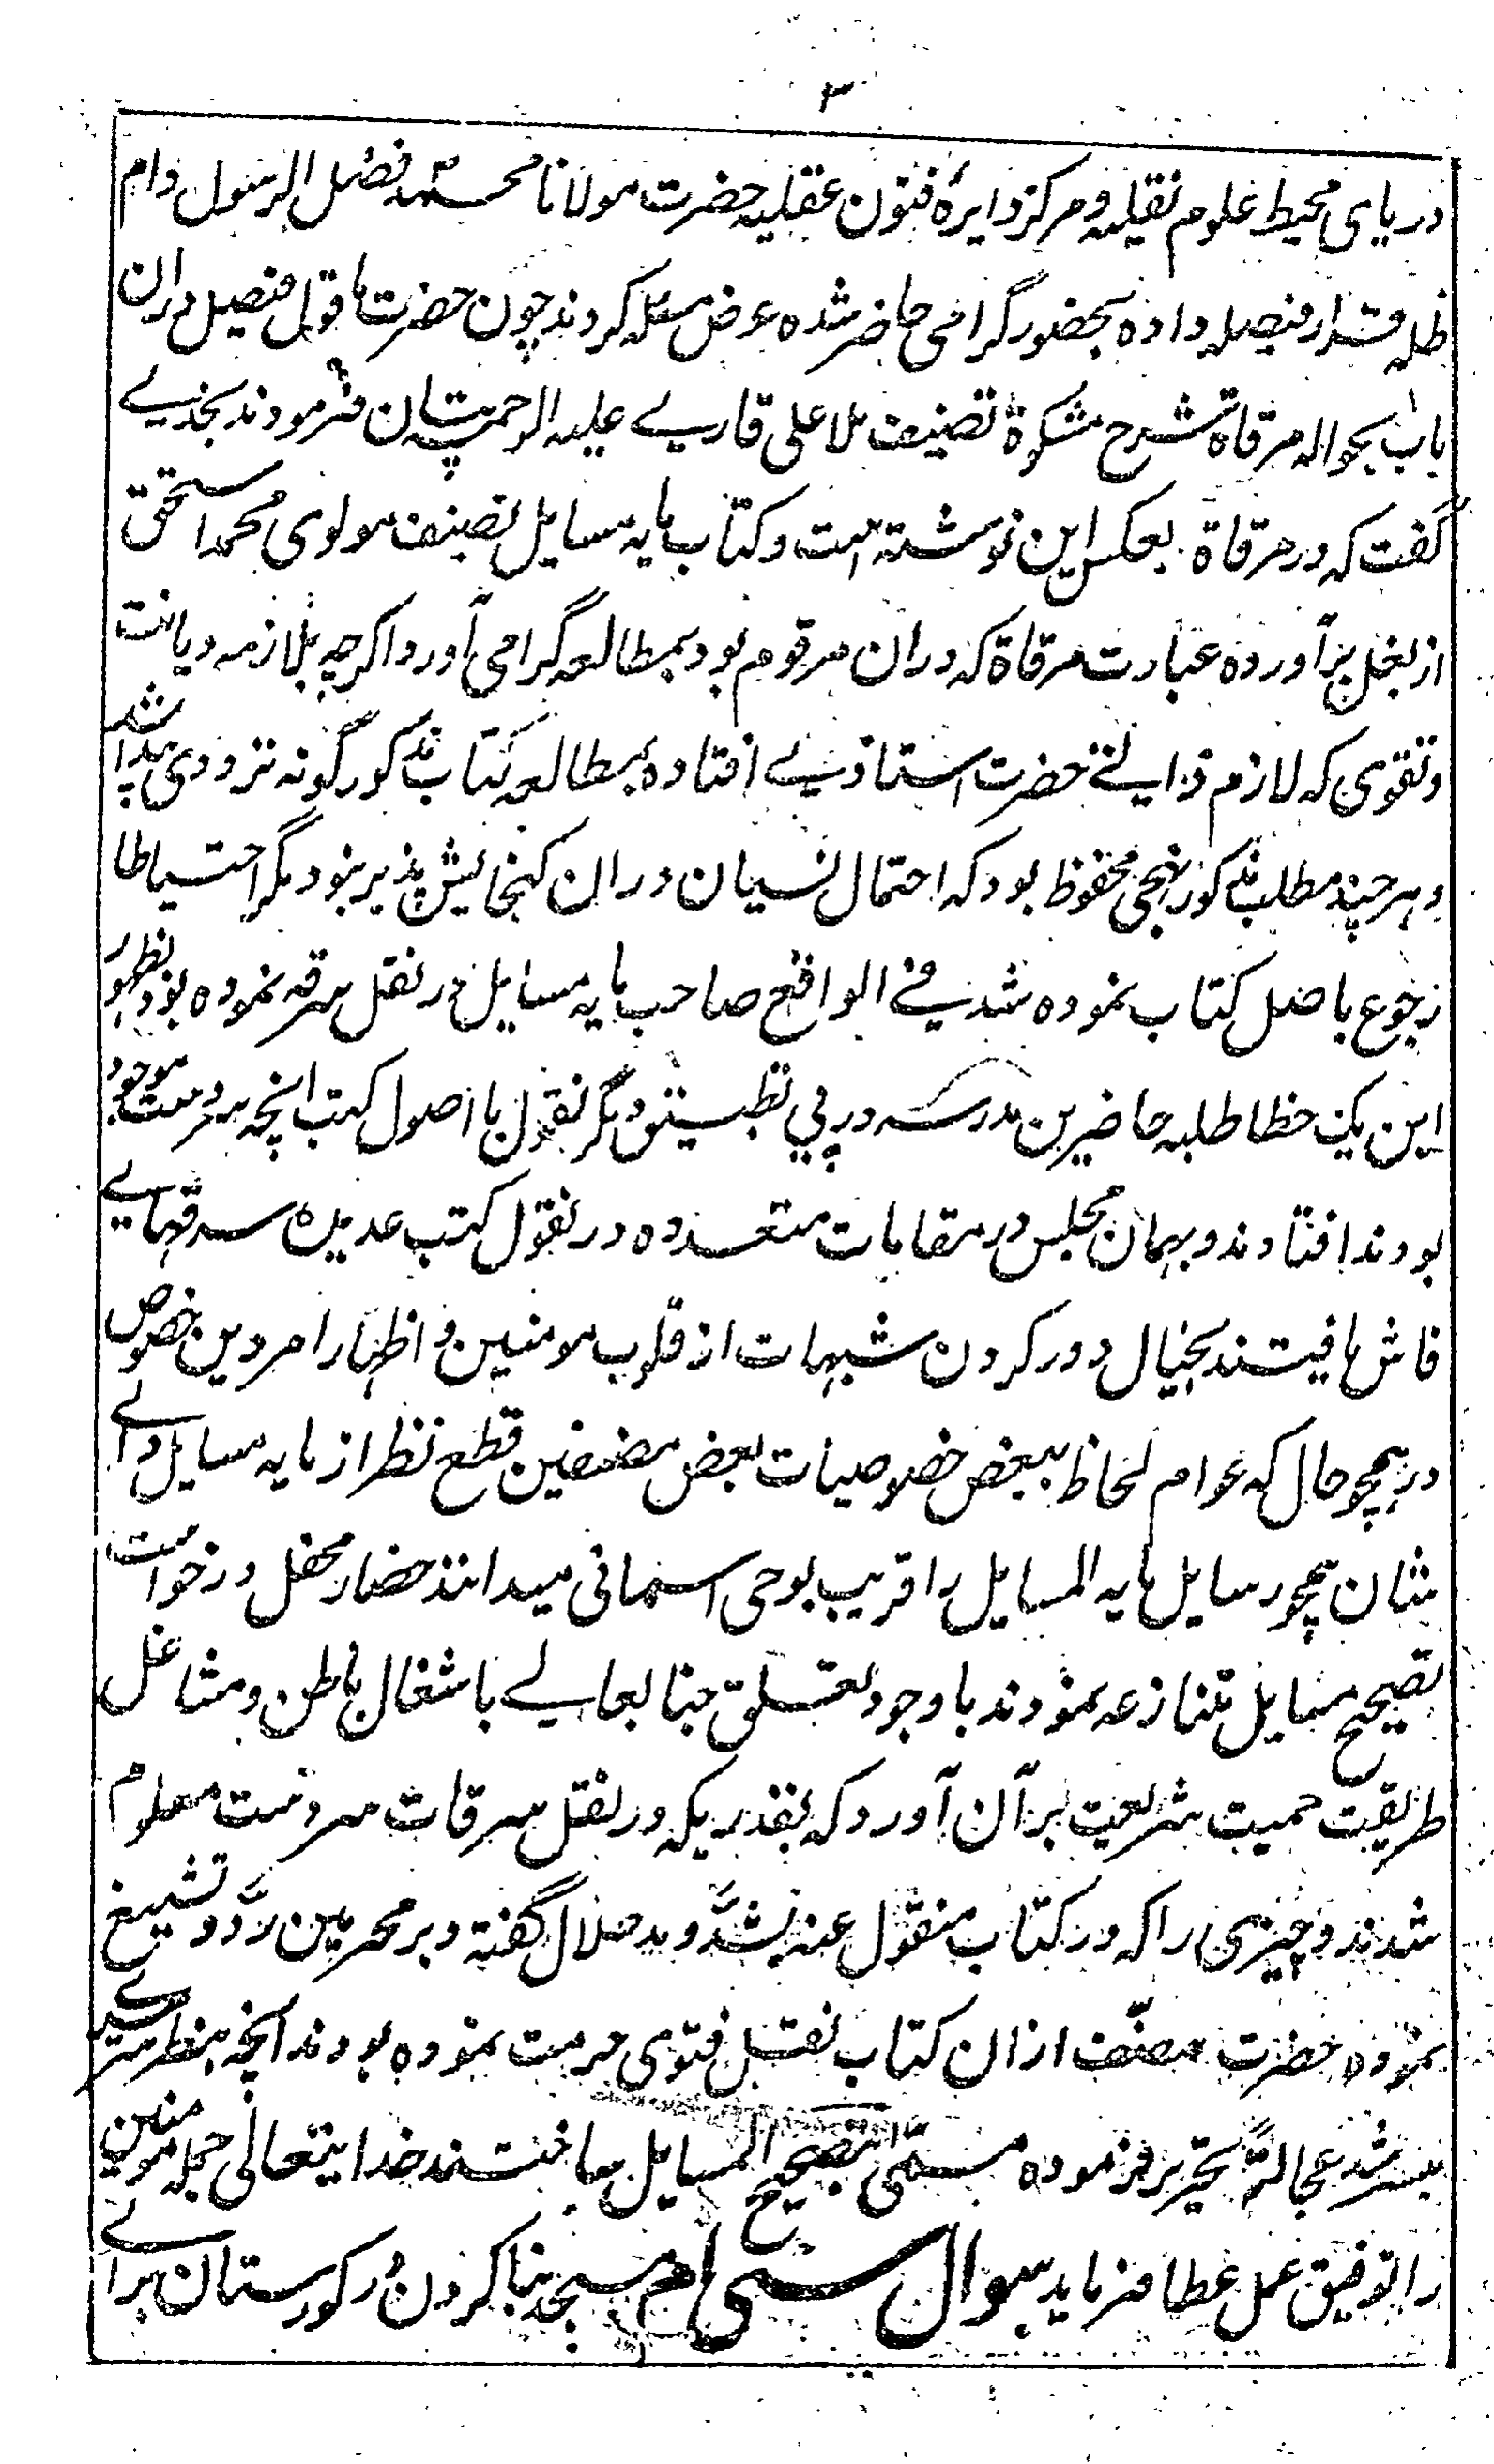 ۳
دریای محیط علوم نقلیه و مرکز دایرهٔ فنون عقلیه حضرت مولانا محمد فضل الرسول دام
ظله قرار فیصله داده بحضور گرامی حاضر شده عرض مسئله کردند چون حضرت ما قول فیصل دران
باب بحواله مرقاة شرح مشکوة تصنیف ملا علی قاری علیه الرحمة بیان فرمودند نجدی
گفت که در مرقاة بعکس این نوشته است و کتاب مایه مسایل تصنیف مولوی محمد اسحق
از بغل برآورده عبارت مرقاة که دران مرقوم بود بمطالعه گرامی آورد اگرچه بملازمه دیانت
و تقوی که لازم ذاتی حضرت استاذی افتاده بمطالعه کتاب مذکور گونه ترددی پیدا شد
و هر چند مطلب مذکور بنهجی محفوظ بود که احتمال نسیان دران گنجایش پذیر نبود مگر احتیاطا
رجوع باصل کتاب نموده شد فی الواقع صاحب مایه مسایل در نقل سرقه نموده بود بظهور
این یک خطا طلبه حاضرین مدرسه در پی تطبیق دیگر نقول با اصول کتب انچه سردست موجود
بودند افتادند و بهمان مجلس در مقامات متعدده در نقول کتب عدیده سرقهای
فاش یافتند بخیال دور کردن شبهات از قلوب مومنین و اظهار امر دین خصوص
در همچو حال که عوام لحاظ ببعض خصوصیات بعض مصنفین قطع نظر از مایه مسایل دانی
شان همچو رسایل مایه المسایل را قریب بوحی اسمانی میدانند حضار محفل درخواست
تصحیح مسایل متنازعه نمودند باوجود تعلق جنابعالی باشغال باطن و مشاغل
طریقت حمیت شریعت بر آن آورد که بقدریکه در نقل سرقات سردست معلوم
شدند و چیزی را که در کتاب منقول عنه بشد و مد حلال گفته و بر محرمین رد و تشنیع
نموده حضرت مصنف ازان کتاب نقل فتوی حرمت نموده بودند انچه بنظر سرسری
میسر شد عجالةً تحریر فرموده مسمی بتصحیح المسایل ساختند خدایتعالی جمله مومنین
را توفیق عمل عطا فرماید سوال سی ام مسجد بنا کردن در گورستان برای